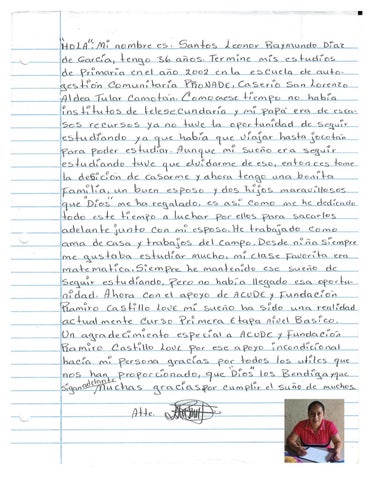 "HOLA". Mi nombre es: Santos Leonor Raymundo Diaz
de García, tengo 36 años. Termine mis estudios
de Primaria en el año 2002 en la escuela de auto-
gestión Comunitaria PRONADE, Caserío San Lorenzo
Aldea Tular Camotán. Como ese tiempo no había
institutos de telesecundaria y mi papá era de esca-
sos recursos ya no tuve la oportunidad de seguir
estudiando ya que había que viajar hasta jocotán
para poder estudiar. Aunque mi sueño era seguir
estudiando tuve que olvidarme de eso, entonces tome
la desición de casarme y ahora tengo una bonita
familia, un buen esposo y dos hijos maravillosos
que "Dios" me ha regalado, es así como me he dedicado
todo este tiempo a luchar por ellos para sacarlos
adelante junto con mi esposo. He trabajado como
ama de casa y trabajos del campo. Desde niña siempre
me gustaba estudiar mucho, mi clase favorita era
matematica. Siempre he mantenido ese sueño de
seguir estudiando, Pero no había llegado esa oportu-
nidad. Ahora con el apoyo de ACUDE y Fundación
Ramiro Castillo Love mi sueño ha sido una realidad
actualmente Curso Primera Etapa nivel Basico.
Un agradecimiento especial a ACUDE y Fundación
Ramiro Castillo Love por ese apoyo incondicional
hacia mi persona gracias por todos los utiles que
nos han proporcionado, que "Dios" los Bendiga y que
sigan adelante Muchas gracias por cumplir el sueño de muchos
Atte.